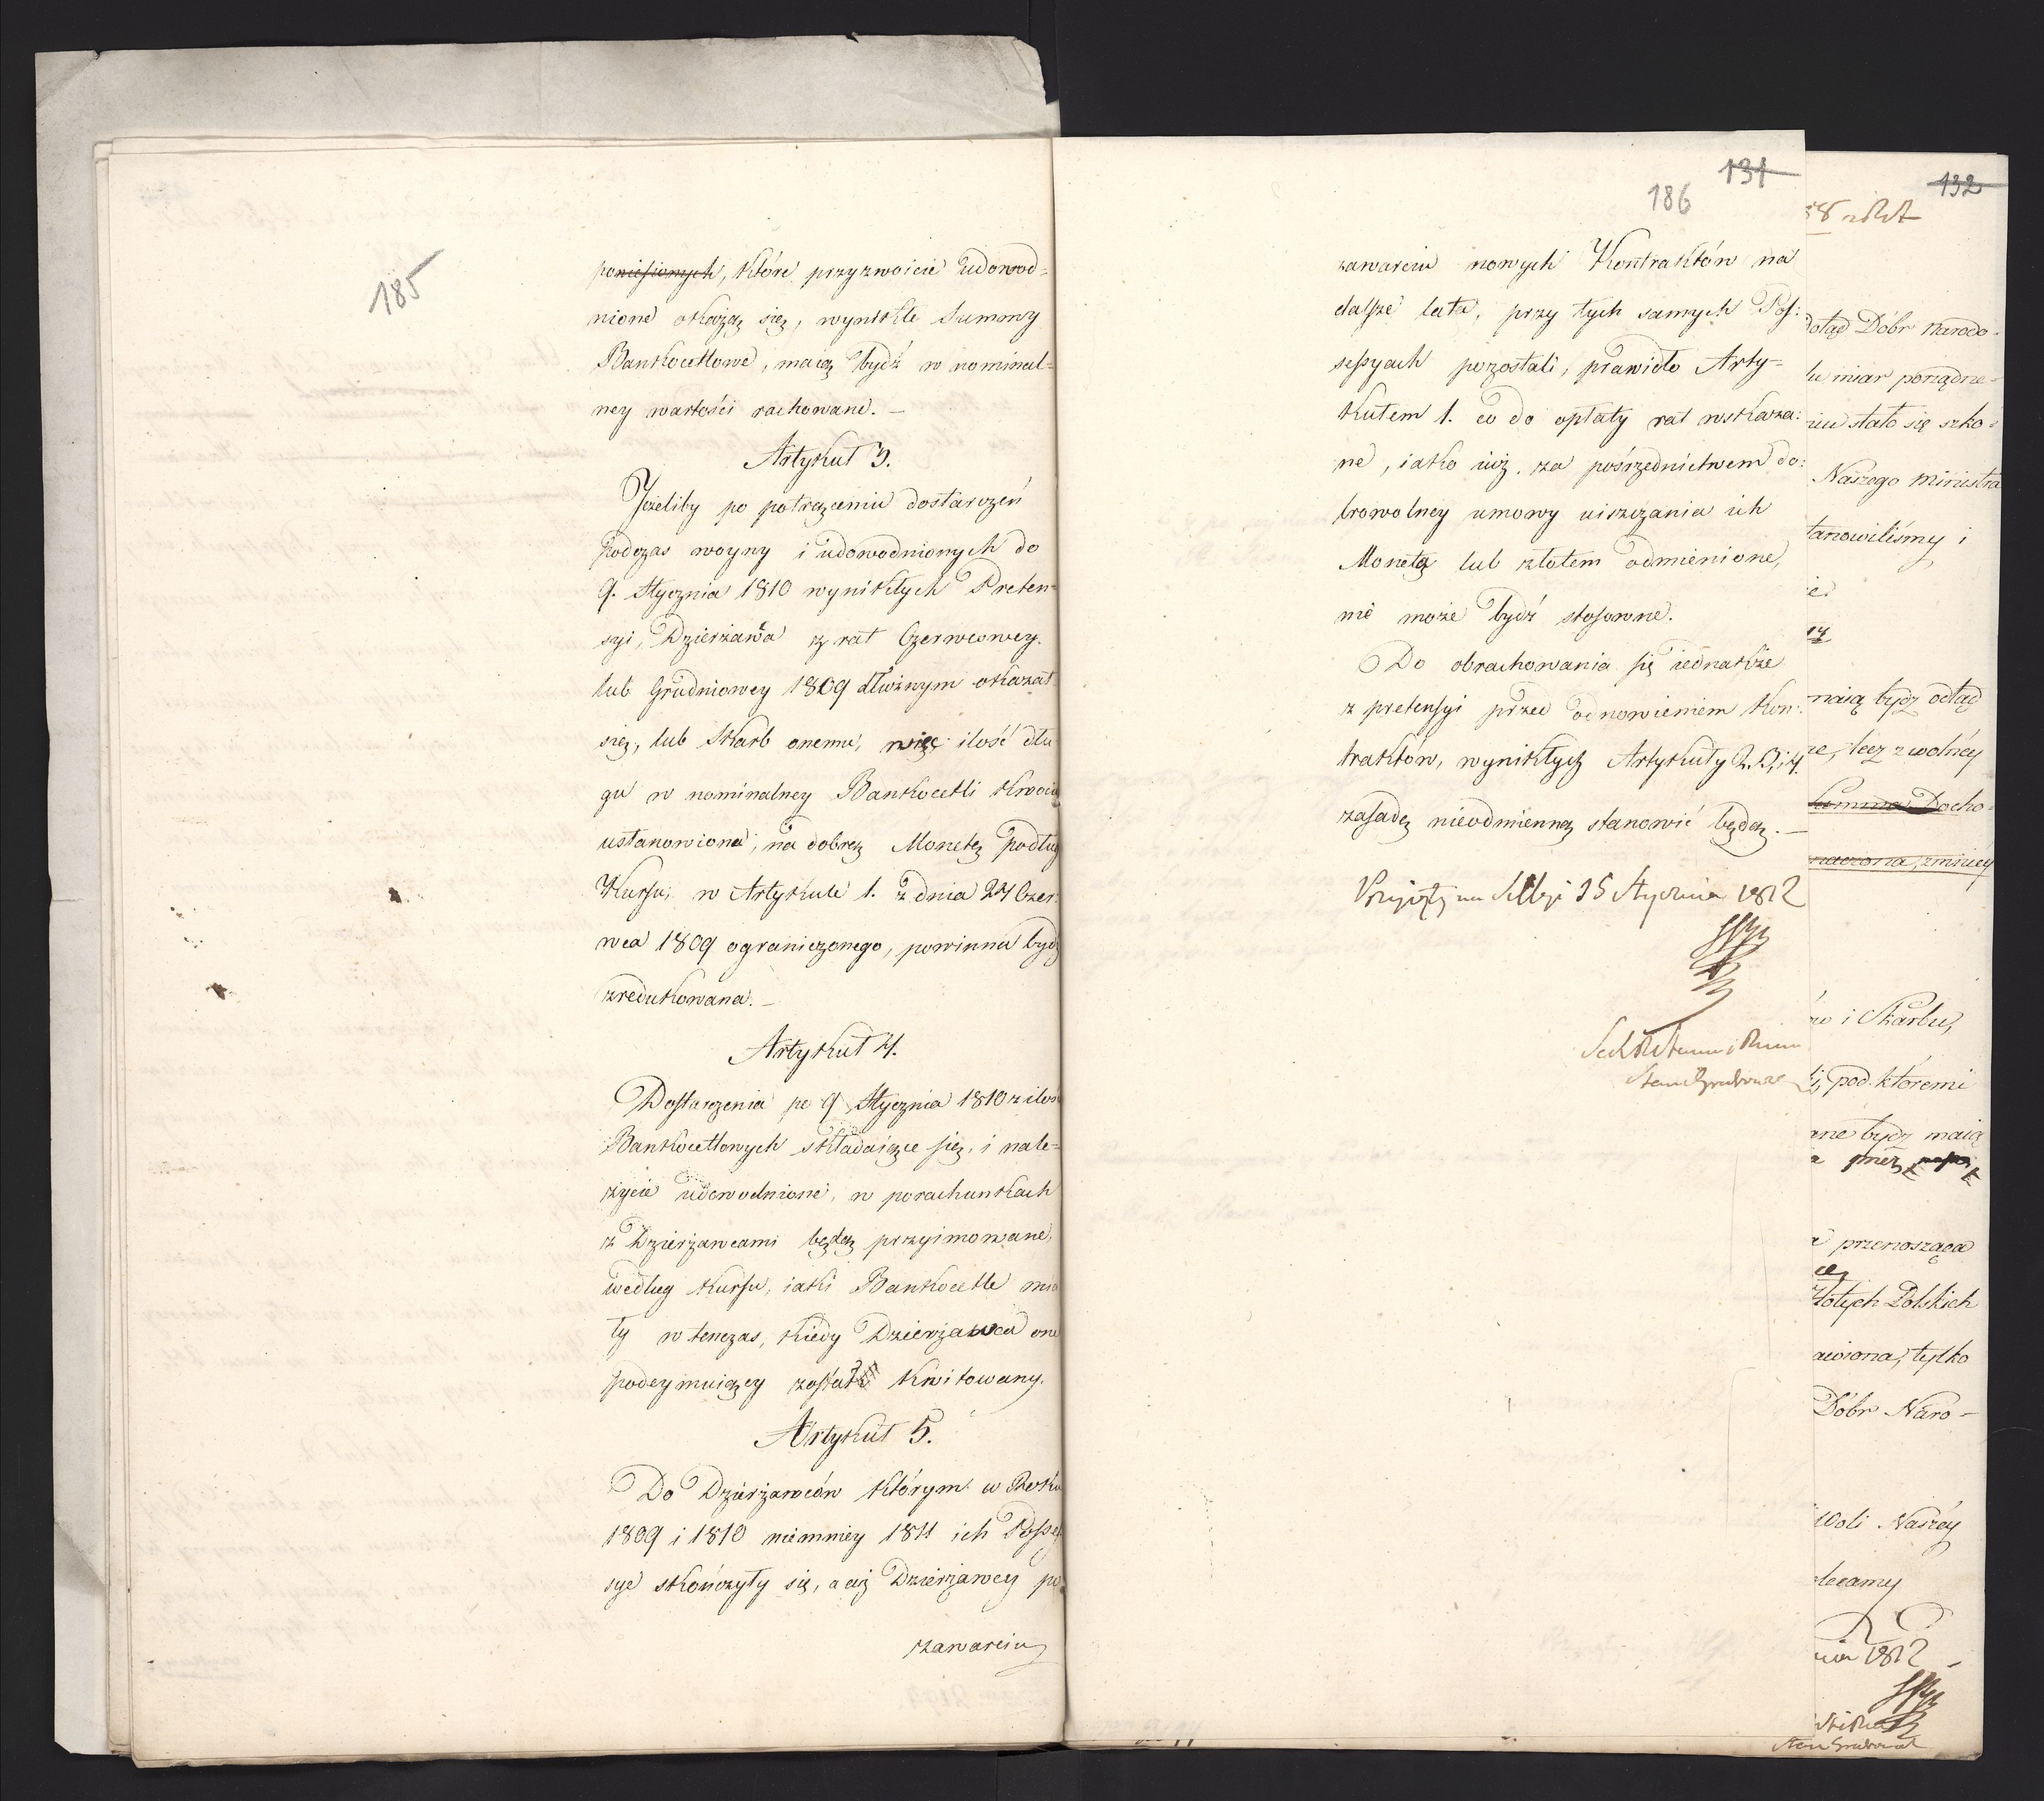 185
poniesionych, które przyzwoicie udowod=
nione okażą się, wynikłe Summy
Bankocetlowe, maią bydź w nominal=
ney wartości rachowane. –
Artykuł 3.
Jeżeliby po potrąceniu dostarczeń
podczas woyny i udowodnionych do
9. Stycznia 1810 wynikłych Preten=
syi, Dzierżawca z rat Czerwcowey
lub Grudniowey 1809 dłużnym okazał
się, lub Skarb onemu, więc ilość dłu
gu w nominalney Bankocetli
ustanowiona, na dobrą Monetę podług
Kursu, w Artykule 1. z dnia 24 Czer:
wca 1809 ograniczonego, powinna bydź
zredukowana. –
Artykuł 4.
Dostarczenia po 9 Stycznia 1810 z ilości
Bankocetlowych składaiące się, i nale=
życie udowodnione, w porachunkach
z Dzierżawcami będą przyimowane,
według Kursu, iaki Bankocetle mia
ły w tenczas, kiedy Dzierżawca one
podeymuiący został kwitowany.
Artykuł 5.
Do Dzierżawców którym w Roku
1809 i 1810 niemniey 1811 ich Posses
sye skończyły się, a ciż Dzierżawcy po
zawarciu
131
186
zawarciu nowych Kontraktów na
dalsze lata, przy tych samych Pos:
sessyach pozostali, prawidło Arty=
kułem 1. co do opłaty rat wskaza:
ne, iako iuż za pośrzednictwem do:
browolney umowy uiszczania ich
Monetą lub złotem odmienione,
nie może bydź stosowne.
Do obrachowania się iednakże
z pretensyi przed odnowieniem Kon:
traktów, wynikłych Artykuły 2. 3. i 4.
zasadę nieodmienną stanowić będą. –
Przyięty na Sessyi 25 Stycznia 1812
132
dotąd Dóbr narodo=
miar porządne=
stało się szko=
Naszego ministra
tanowiliśmy i
maią bydz odtąd
lecz z wolney
Summa Docho=
naczona, zmniey
i Skarbu,
pod ktoremi
ane bydz maią
przez
przenosząca
Złotych Polskich
awiona, tylko
Dóbr Naro–
Woli Naszey
lecamy
1812